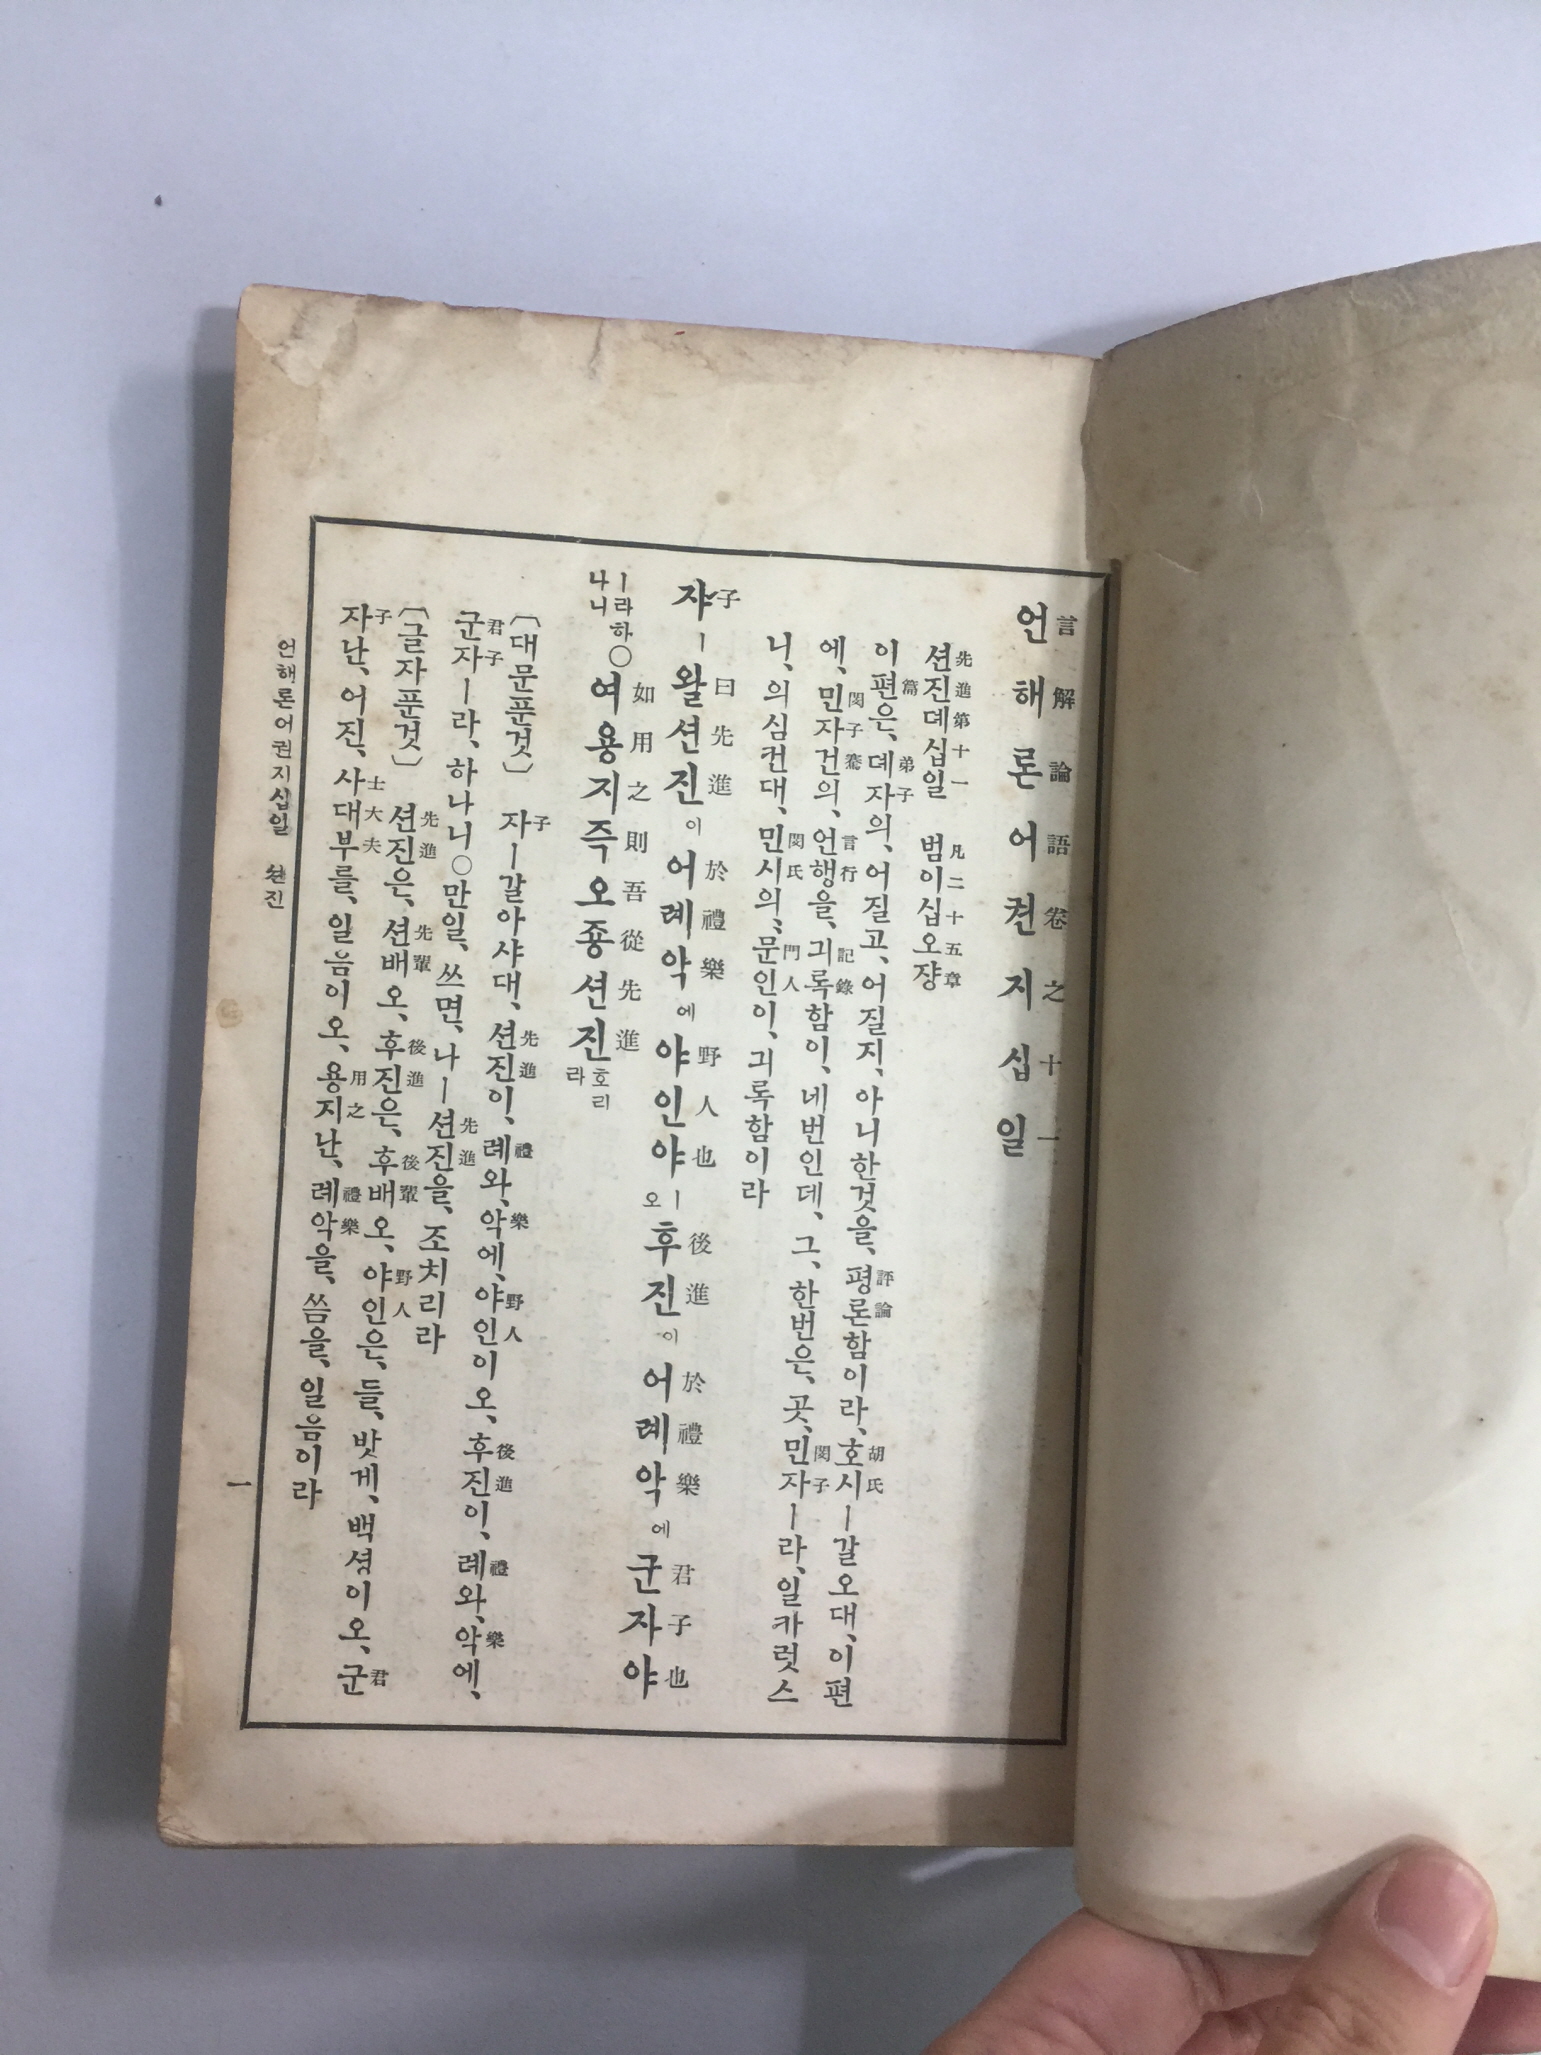 언해론어권지십일
言解論語卷之十一
션진뎨십일 범이십오쟝
先進第十一 凡二十五章
이편은、뎨자의、어질고、어질지、아니한것을、평론함이라、호시ㅣ갈오대、이편
篇 弟子 評論 胡氏
에、민자건의、언행을、긔록함이、네번인데、그、한번은、곳、민자ㅣ라、일카럿스
閔子騫 言行 記錄 閔子
니、의심컨대、민시의、문인이、긔록함이라
閔氏 門人
쟈ㅣ왈션진이어례악에야인야ㅣ오후진이어례악에군자야
子曰先進於禮樂野人也後進於禮樂君子也
ㅣ라하나니○여용지즉오죵션진호리라
如用之則吾從先進
〔대문푼것〕 자ㅣ갈아샤대、션진이、례와、악에、야인이오、후진이、례와、악에、
子 先進 禮 樂 野人 後進 禮 樂
군자ㅣ라、하나니○만일、쓰면、나ㅣ션진을、조치리라
君子 先進
〔글자푼것〕 션진은、션배오、후진은、후배오、야인은、들、밧게、백셩이오、군
先進 先輩 後進 後輩 野人 君
자난、어진、사대부를、일음이오、용지난、례악을、씀을、일음이라
子 士大夫 用之 禮樂
언해론어권지십일 션진
一